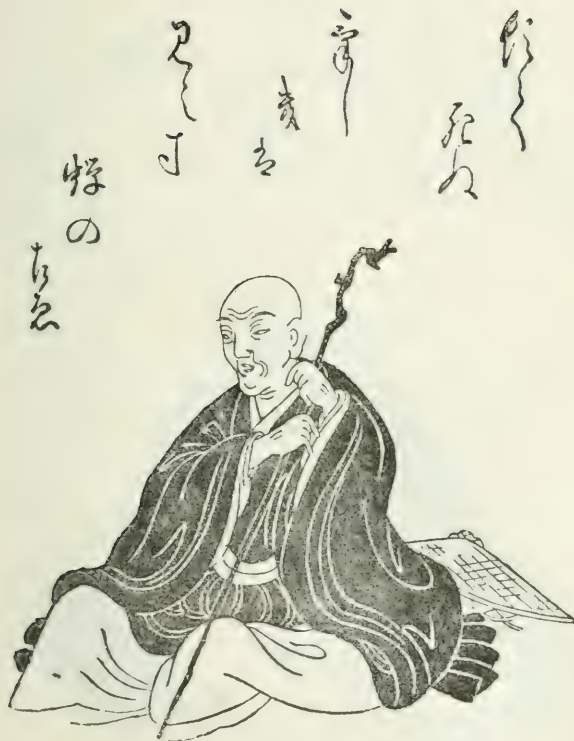 頓て
死ぬ
けし
きは
見えす
蝉の
こゑ